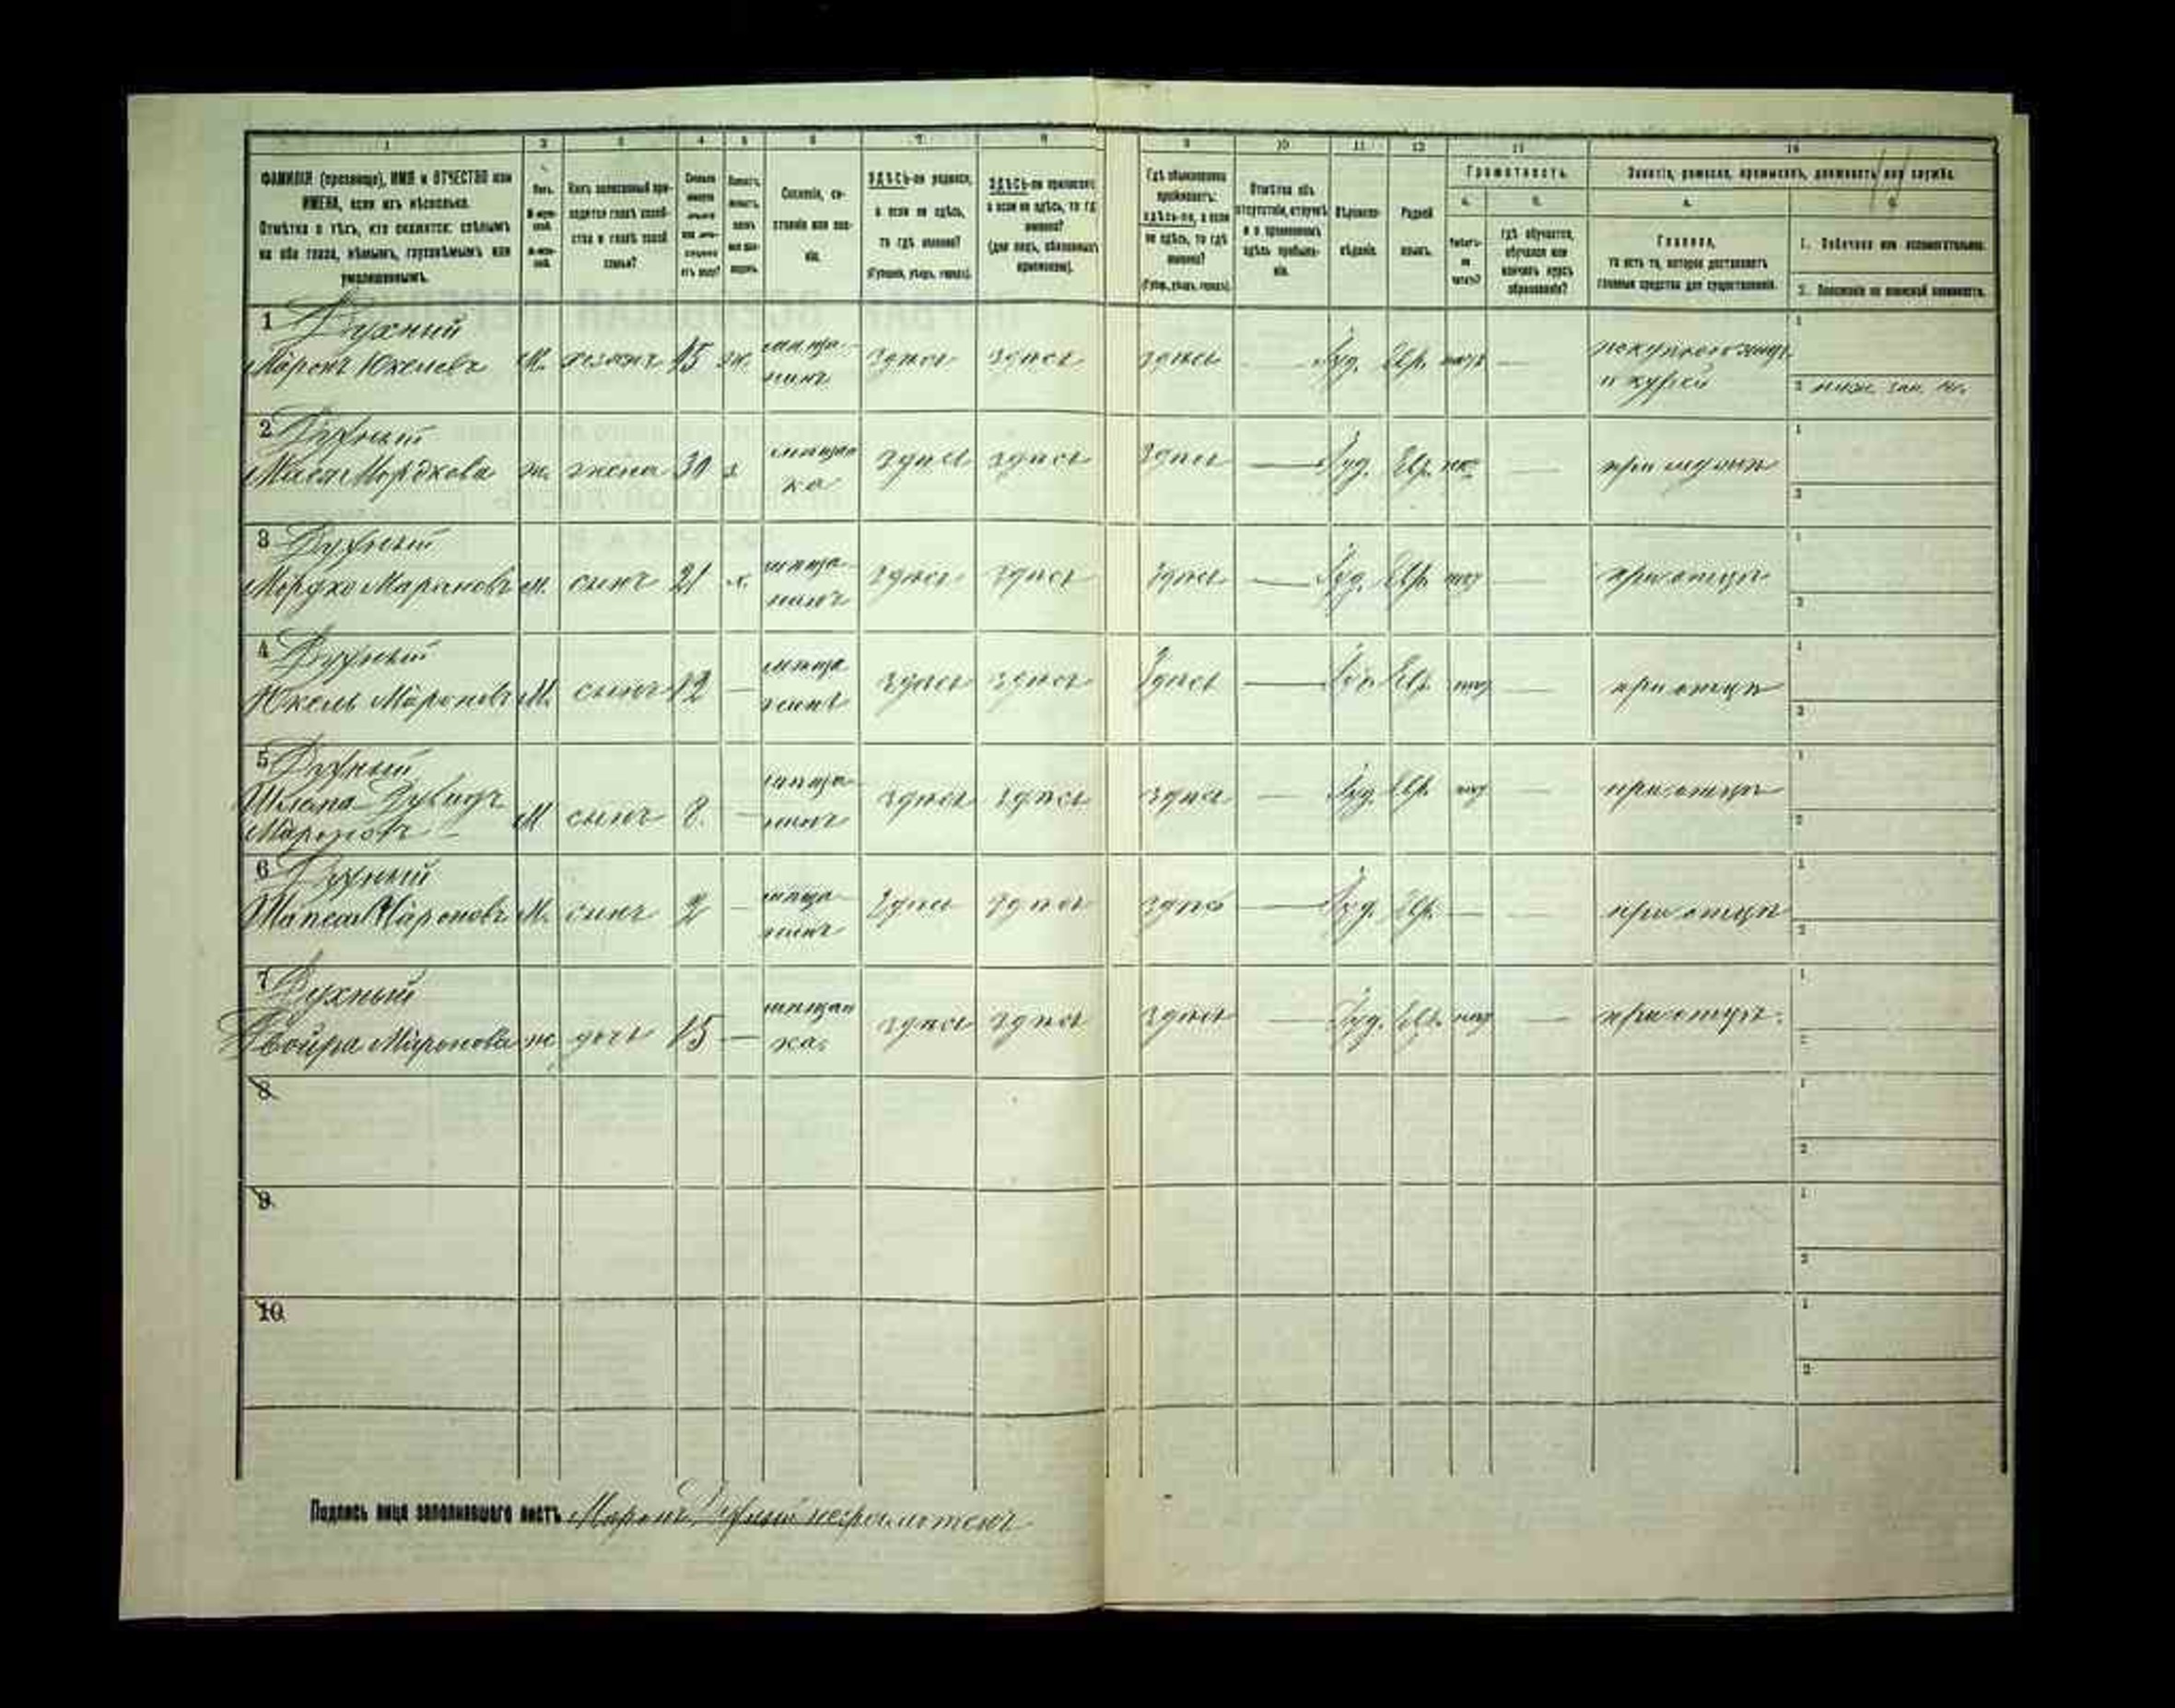 1 2 3 4 5 6 7 8 9 10 11 12 13 14
ФАМИЛІЯ (прозвище), ИМЯ и ОТЧЕСТВО или
ИМЕНА, если ихъ нѣсколько.
Отмѣтка о тѣхъ, кто окажется: слѣпымъ
на оба глаза, нѣмымъ, глухонѣмымъ или
умалишеннымъ.
Полъ.
Какъ записанный при-
ходится главѣ хозяй-
ства и главѣ своей
семьи?
Сословіе, со-
стояніе или зва-
ніе.
ЗДѢСЬ-ли родился,
а если не здѣсь,
то гдѣ именно?
(Губернія, уѣздъ, городъ).
ЗДѢСЬ-ли приписанъ,
а если не здѣсь, то гдѣ
именно?
(для лицъ, обязанныхъ
припискою).
Гдѣ обыкновенно
проживаетъ:
здѣсь-ли, а если
не здѣсь, то гдѣ
именно?
(Губ., уѣздъ, городъ).
Отмѣтка объ
отсутствіи, отлучкѣ
и о временномъ
здѣсь пребыва-
ніи.
Вѣроиспо-
вѣданіе.
Родной
языкъ.
Грамотность.
а. б.
Умѣетъ-
ли
читать?
гдѣ обучается,
обучался или
кончилъ курсъ
образованія?
Занятіе, ремесло, промыселъ, должность или служба.
Главное,
то есть то, которое доставляетъ
главныя средства для существованія.
1. Побочное или вспомогательное.
2. Положеніе по воинской повинности.
1 Духный
Маронъ Юкелевъ М. хозяинъ 45 ж. мѣща-
нинъ здѣсь здѣсь здѣсь Іуд. Евр.
и курей
2 Духный
Мася Мордкова ж. жена 30 з мѣщан
ка здѣсь здѣсь здѣсь — Іуд. Евр. — при мужѣ
3 Духный
Мордко Мароновъ М. сынъ 21 х. мѣща-
нинъ здѣсь здѣсь здѣсь — Іуд. Евр. — при отцѣ
4 Духный
Юкель Мароновъ М. сынъ 12 — мѣща
нинъ здѣсь здѣсь здѣсь — Іуд. Евр. — при отцѣ
5 Духный
Шлема Дувидъ
Мароновъ М сынъ 8. — мѣща-
нинъ здѣсь здѣсь здѣсь — Іуд. Евр. — при отцѣ
6 Духный
Мароновъ М. сынъ 2 — мѣща-
нинъ здѣсь здѣсь здѣсь — Іуд. Евр. — — при отцѣ
7 Духный
Двойра Маронова ж. дочь 15 — мѣщан
ка. здѣсь здѣсь здѣсь — Іуд. Евр. — при отцѣ.
8
9
10
Подпись лица заполнившаго листъ Маронъ Духный неграмотенъ